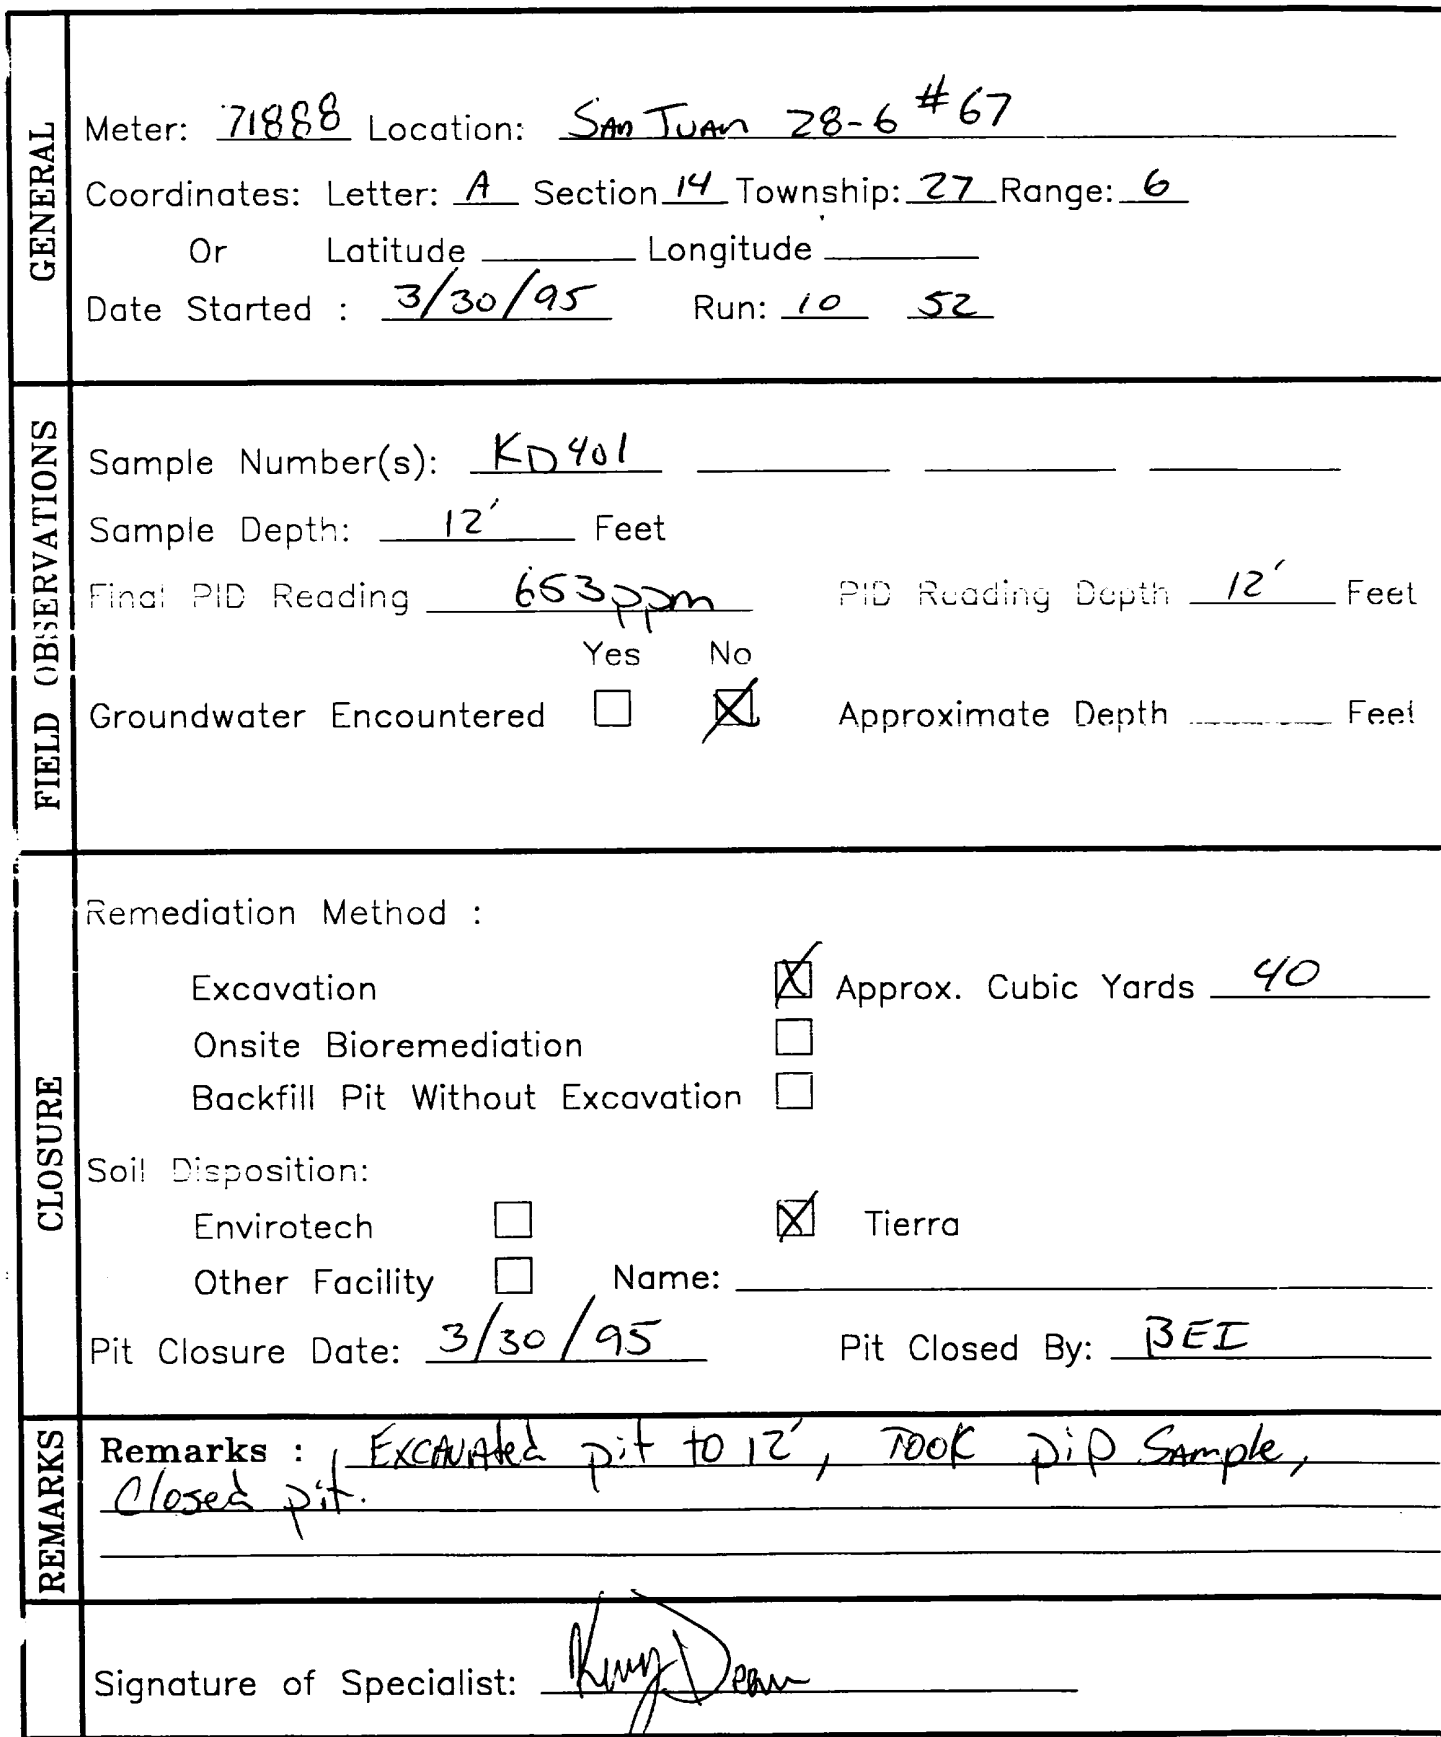 GENERAL
Meter: 71888 Location: San Juan 28-6 #67
Coordinates: Letter: A Section 14 Township: 27 Range: 6
Or Latitude ______ Longitude ______
Date Started : 3/30/95 Run: 10 52
FIELD OBSERVATIONS
Sample Number(s): KD401 ______ ______ ______
Sample Depth: 12' Feet
Final PID Reading 653ppm PID Reading Depth 12' Feet
Yes No
Groundwater Encountered ☐ ☒ Approximate Depth ______ Feet
CLOSURE
Remediation Method :
Excavation ☒ Approx. Cubic Yards 40
Onsite Bioremediation ☐
Backfill Pit Without Excavation ☐
Soil Disposition:
Envirotech ☐ ☒ Tierra
Other Facility ☐ Name: ______
Pit Closure Date: 3/30/95 Pit Closed By: BEI
REMARKS
Remarks : Excavated pit to 12', Took pid Sample,
Closed pit.
Signature of Specialist: Dean